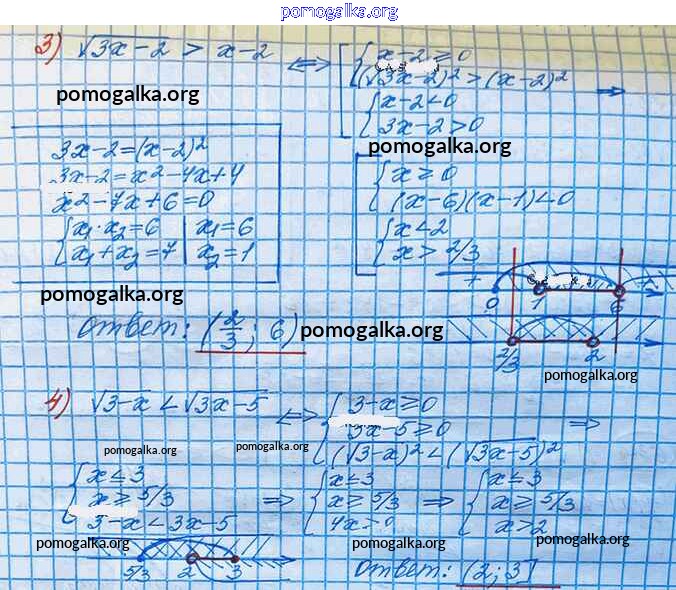 pomogalka.org
3) √3x-2 > x-2 ⟺ [ { x-2 ≥ 0
(√3x-2)² > (x-2)² ⟹
{ x-2 < 0
3x-2 > 0
pomogalka.org
pomogalka.org
3x-2 = (x-2)²
3x-2 = x²-4x+4
x²-7x+6=0
{ x₁·x₂=6 | x₁=6
x₁+x₂=7 | x₂=1
[ { x ≥ 0
(x-6)(x-1)<0
{ x<2
x > 2/3
+ 0 1 6 +
pomogalka.org
ответ: (2/3; 6)
pomogalka.org
2/3 2
pomogalka.org
4) √3-x < √3x-5 ⟺ { 3-x ≥ 0
3x-5 ≥ 0 ⟹
(√3-x)² < (√3x-5)²
pomogalka.org pomogalka.org
{ x ≤ 3
x ≥ 5/3 ⟹
3-x < 3x-5
{ x ≤ 3
x ≥ 5/3 ⟹
{ x ≤ 3
x ≥ 5/3
x > 2
pomogalka.org pomogalka.org pomogalka.org
5/3 2 3
ответ: (2; 3]